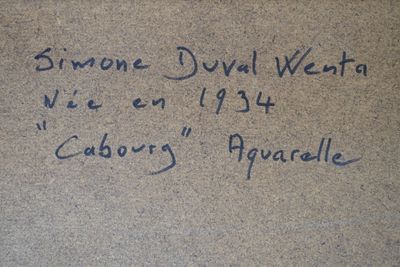 Simone Duval Wenta
Née en 1934
"Cabourg" Aquarelle